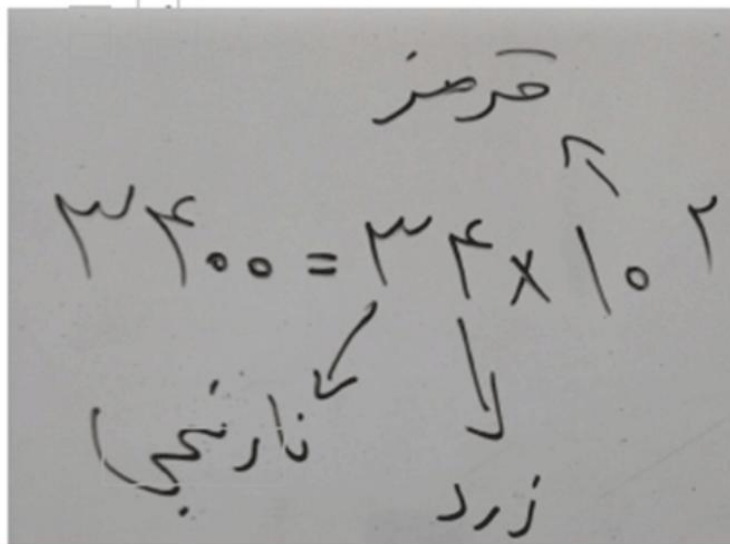 قرمز
۳۴۰۰ = ۳۴ × ۱۰ ۲
نارنجی
زرد